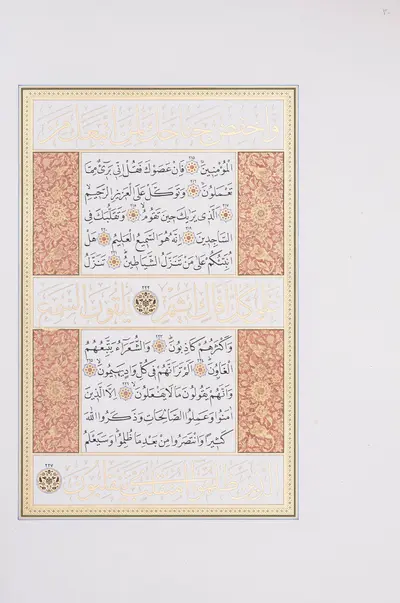 ٢٠
وَاخْفِضْ جَنَاحَكَ لِمَنِ اتَّبَعَكَ مِنَ
الْمُؤْمِنِينَ ٢١٥ فَاِنْ عَصَوْكَ فَقُلْ اِنّٖي بَرٖٓيءٌ مِمَّا
تَعْمَلُونَ ٢١٦ وَتَوَكَّلْ عَلَى الْعَزٖيزِ الرَّحٖيمِ ٢١٧
اَلَّذٖي يَرٰيكَ حٖينَ تَقُومُ ٢١٨ وَتَقَلُّبَكَ فِي
السَّاجِدٖينَ ٢١٩ اِنَّهُ هُوَ السَّمٖيعُ الْعَلٖيمُ ٢٢٠ هَلْ
اُنَبِّئُكُمْ عَلٰى مَنْ تَنَزَّلُ الشَّيَاطٖينُ ٢٢١ تَنَزَّلُ
عَلٰى كُلِّ اَفَّاكٍ اَثٖيمٍ ٢٢٢ يُلْقُونَ السَّمْعَ
وَاَكْثَرُهُمْ كَاذِبُونَ ٢٢٣ وَالشُّعَرَٓاءُ يَتَّبِعُهُمُ
الْغَاوُنَ ٢٢٤ اَلَمْ تَرَ اَنَّهُمْ فٖي كُلِّ وَادٍ يَهٖيمُونَ ٢٢٥
وَاَنَّهُمْ يَقُولُونَ مَا لَا يَفْعَلُونَ ٢٢٦ اِلَّا الَّذٖينَ
اٰمَنُوا وَعَمِلُوا الصَّالِحَاتِ وَذَكَرُوا اللّٰهَ
كَثٖيرًا وَانْتَصَرُوا مِنْ بَعْدِ مَا ظُلِمُوا وَسَيَعْلَمُ
الَّذٖينَ ظَلَمُٓوا اَيَّ مُنْقَلَبٍ يَنْقَلِبُونَ ٢٢٧